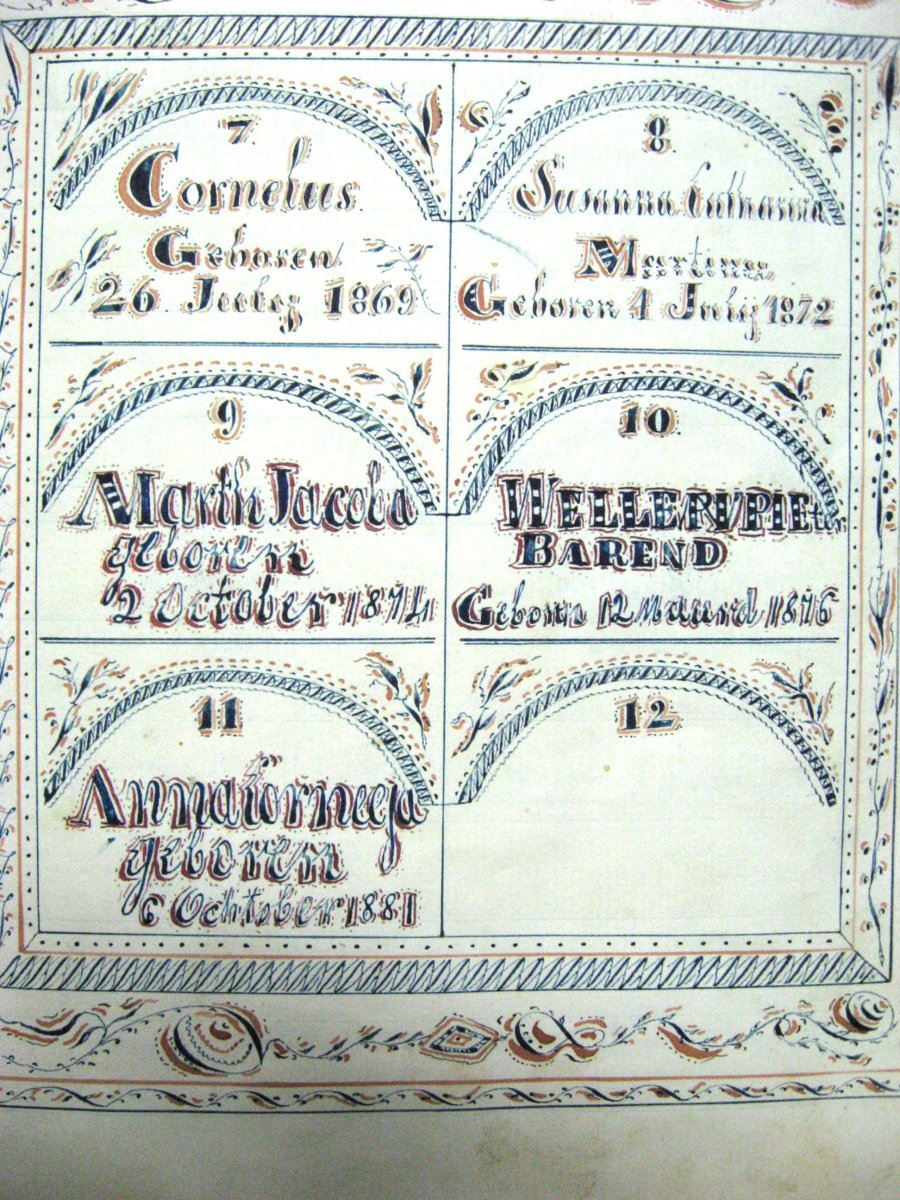 7.
Cornelius
Geboren
26 Juley 1869
8
Susanna Catharina
Martina
Geboren 1 July 1872
9
Marth Jacoba
geboren
2 October 1874
10
WELLEM PIEter
BAREND
Geboren 12 1876
11
Annacorneeja
geboren
6 Ochtober 1881
12